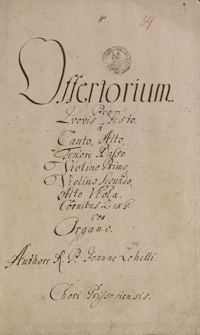 Offertorium.
Pro
Quovis Festo.
à
Canto, Alto,
Tenore Basso
Violino Primo,
Violino Secundo,
Alto Viola.
Cornibus 2 ex G.
con
Organo.
Authore R. P. Joanne Lohelli.
Chori Trissoviensis.